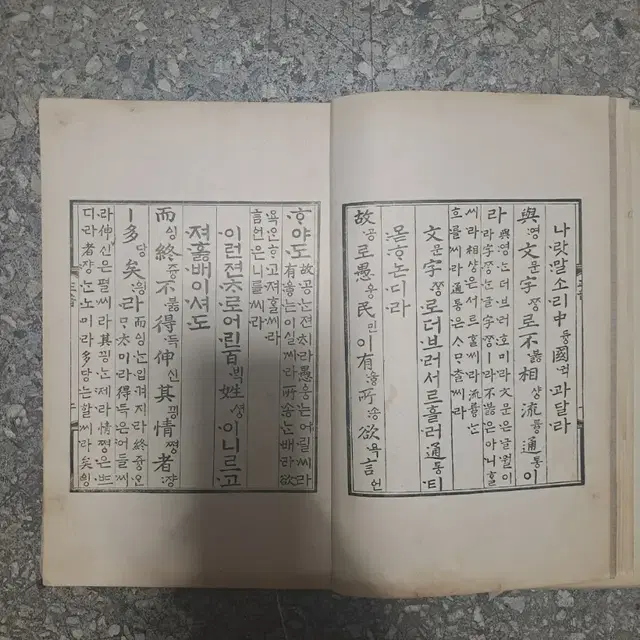 나랏말소리中듕國귁과달라
與영文문字쫑로不붏相샹流륳通통이
라與영는더브러호미라文문은글월이
라字쫑는글字쫑ㅣ라不붏은아니ᄒᆞᆯ
씨라相샹은서르ᄒᆞ논ᄠᅳ디라流륳는
흐를씨라通통은ᄉᆞᄆᆞᄎᆞᆯ씨라
文문字쫑로더브러서르흘러通통티
몯ᄒᆞ논디라
故공로愚웅民민이有ᅌᅮᇢ所송欲욕言언
ᄒᆞ야도故공는젼ᄎᆞ라愚웅는어릴씨라
有ᅌᅮᇢ는이실씨라所송는배라欲
욕은ᄒᆞ고져ᄒᆞᆯ씨라
言언은니를씨라
이런젼ᄎᆞ로어린百ᄇᆡᆨ姓셩이니르고
져홇배이셔도
而ᅀᅵᆼ終즁不붏得득伸신其끵情쪙者쟝
ㅣ多당矣ᅌᅴᆼ라而ᅀᅵᆼ는입겨지라終즁은
ᄆᆞᄎᆞ미라得득은어들씨
라伸신은펼씨라其끵는제라情쪙은ᄠᅳ
디라者쟝는노미라多당는할씨라矣ᅌᅴᆼ